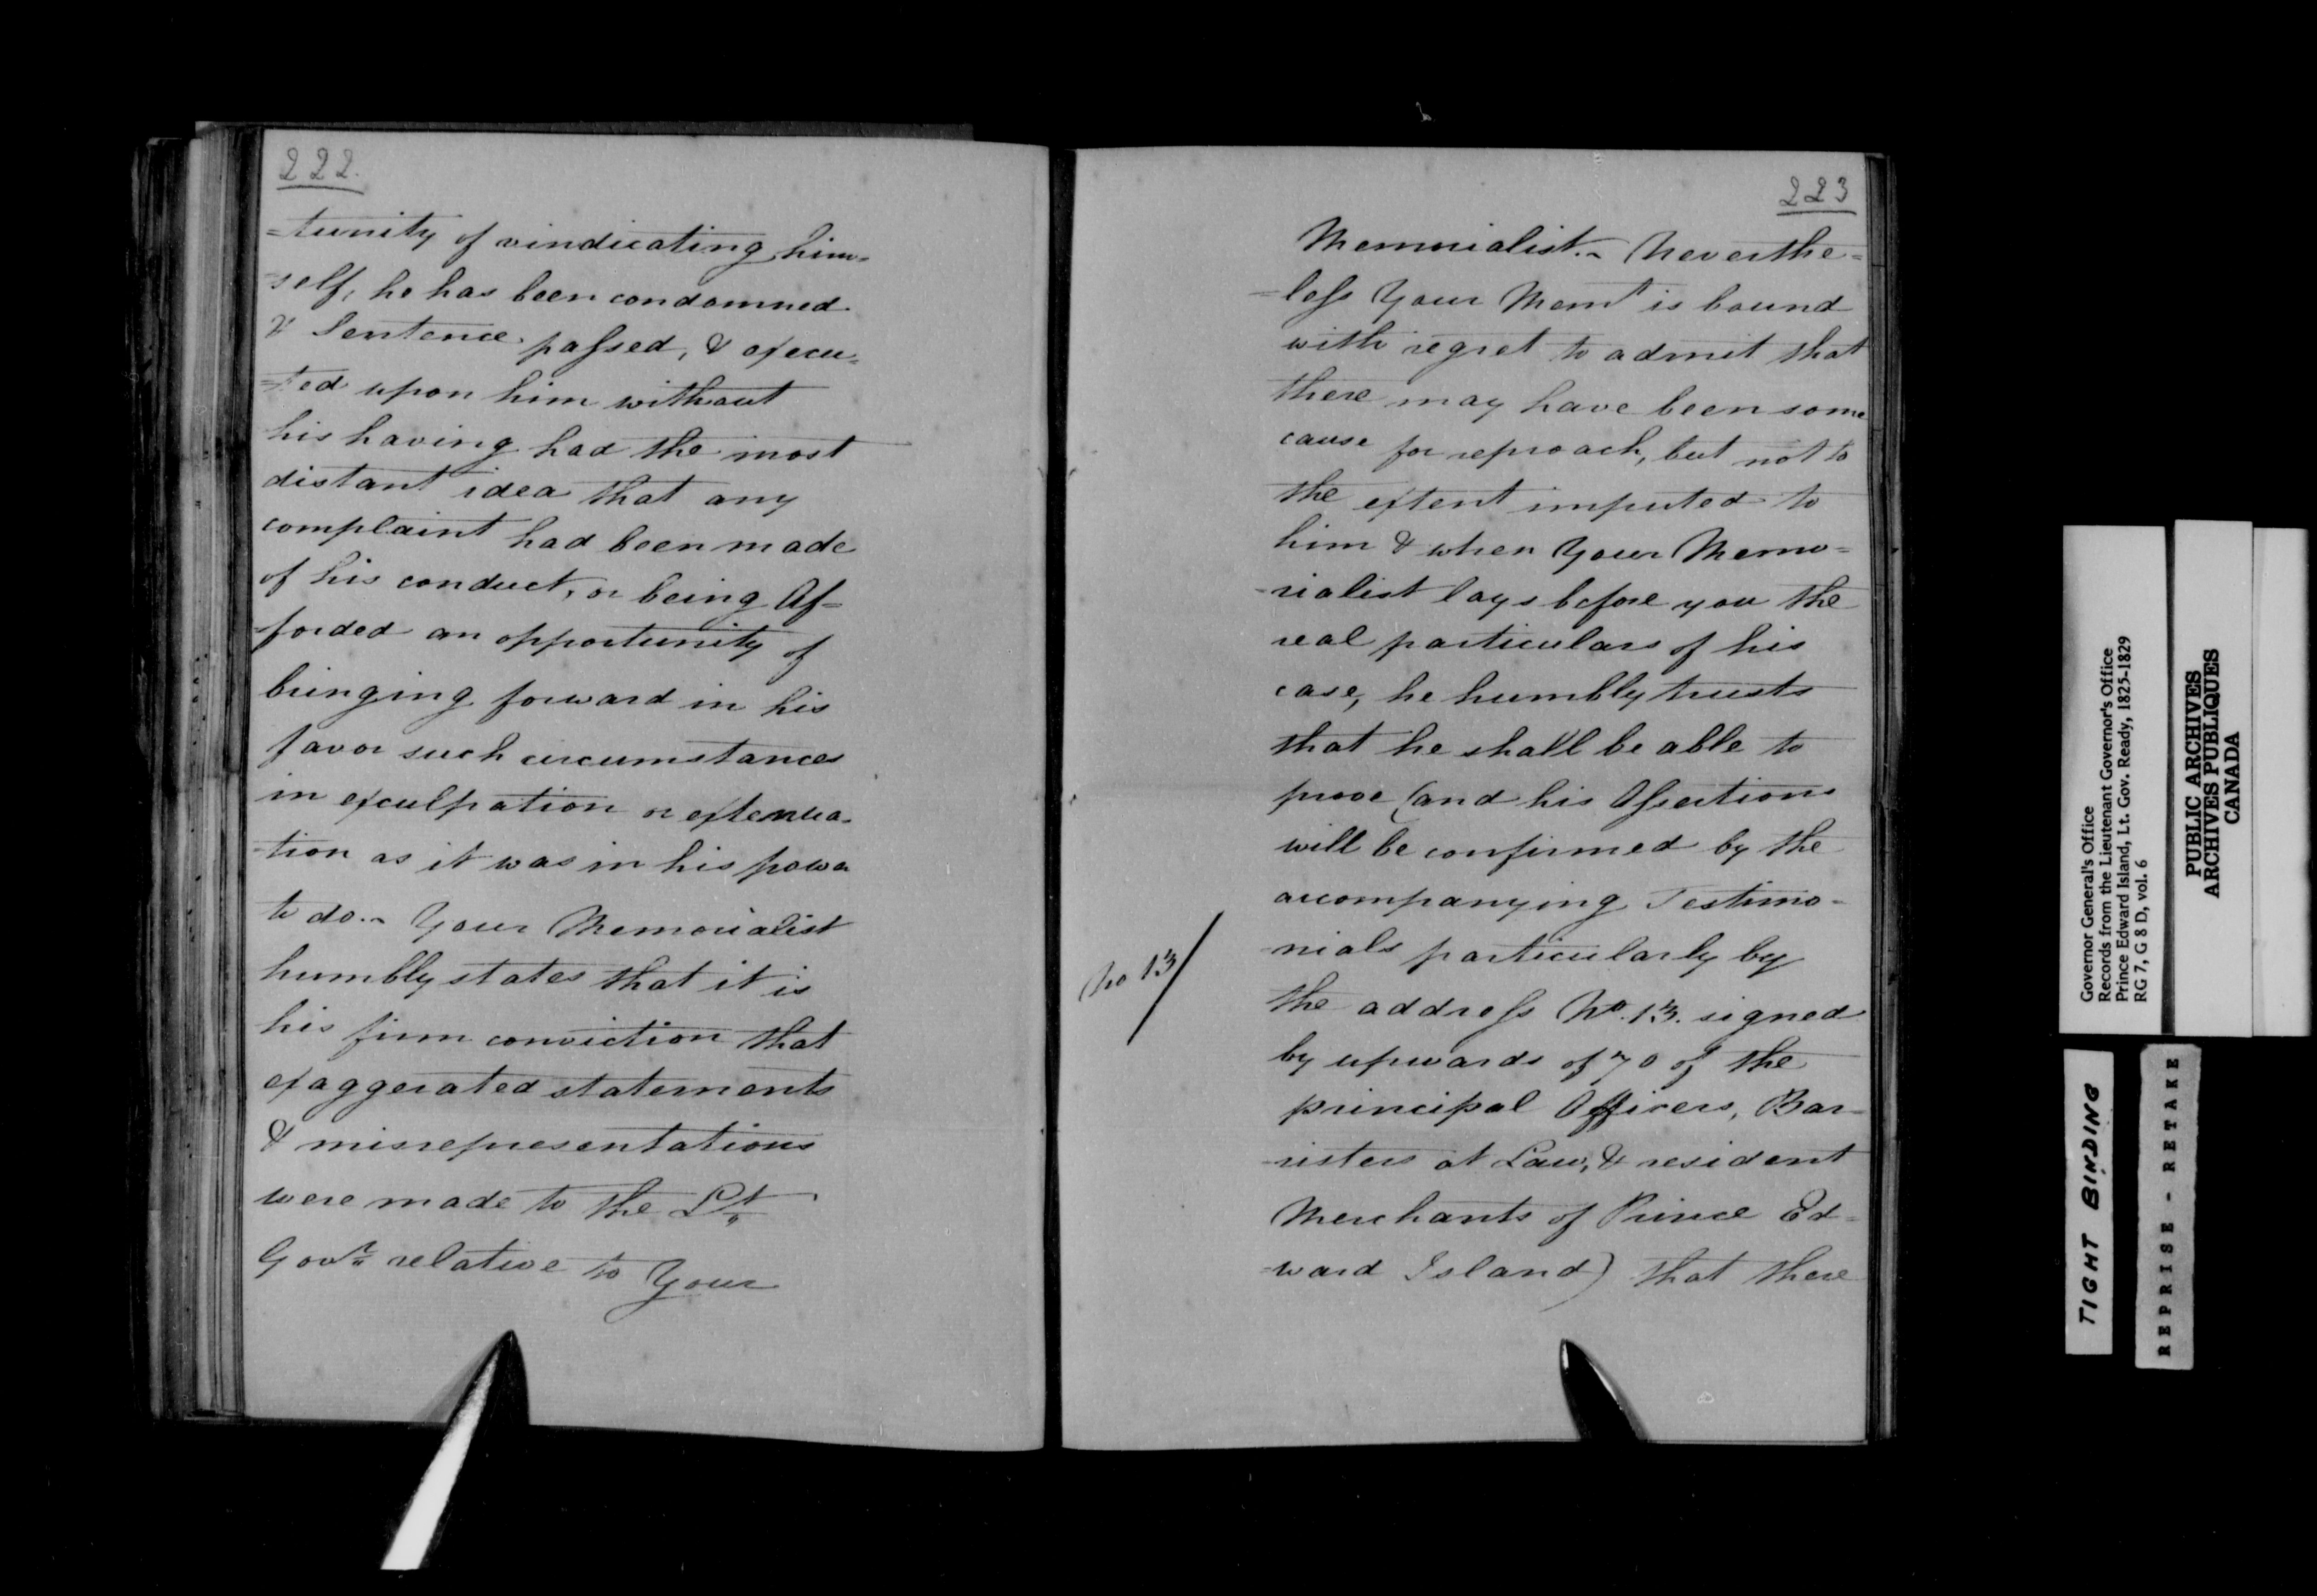 222.
=tunity of vindicating him=
=self, he has been condemned
& Sentence passed, & execu=
=ted upon him without
his having had the most
distant idea that any
complaint had been made
of his conduct, or being Af=
=forded an opportunity of
bringing forward in his
favor such circumstances
in exculpation or extenua-
-tion as it was in his power
to do.- Your Memorialist
humbly states that it is
his firm conviction that
exaggerated statements
& misrepresentations
were made to the Lt.
Govr. relative to Your
223
Memorialist.- Neverthe=
=less Your Memt is bound
with regret to admit that
there may have been some
cause for reproach, but not to
the extent imputed to
him & when Your Memo=
-rialist lays before you the
real particulars of his
case, he humbly trusts
that he shall be able to
prove (and his Assertions
will be confirmed by the
accompanying Testimo-
-nials particularly by
No 13
the address No. 13. signed
by upwards of 70 of the
principal Officers, Bar-
-risters at Law, & resident
Merchants of Prince Ed=
-ward Island) that there
Governor General's Office
Records from the Lieutenant Governor's Office
Prince Edward Island, Lt. Gov. Ready, 1825-1829
RG 7, G 8 D, vol. 6
PUBLIC ARCHIVES
ARCHIVES PUBLIQUES
CANADA
TIGHT BINDING
REPRISE - RETAKE